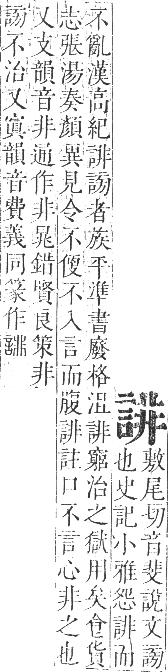 誹
敷尾切音斐說文謗
也史記小雅怨誹而
不亂漢高紀誹謗者族平準書廢格沮誹窮治之獄用矣食貨
志張湯奏顏異見令不便不入言而腹誹註口不言心非之也
又支韻音非通作非晁錯賢良策非
謗不治又寘韻音費義同篆作誹